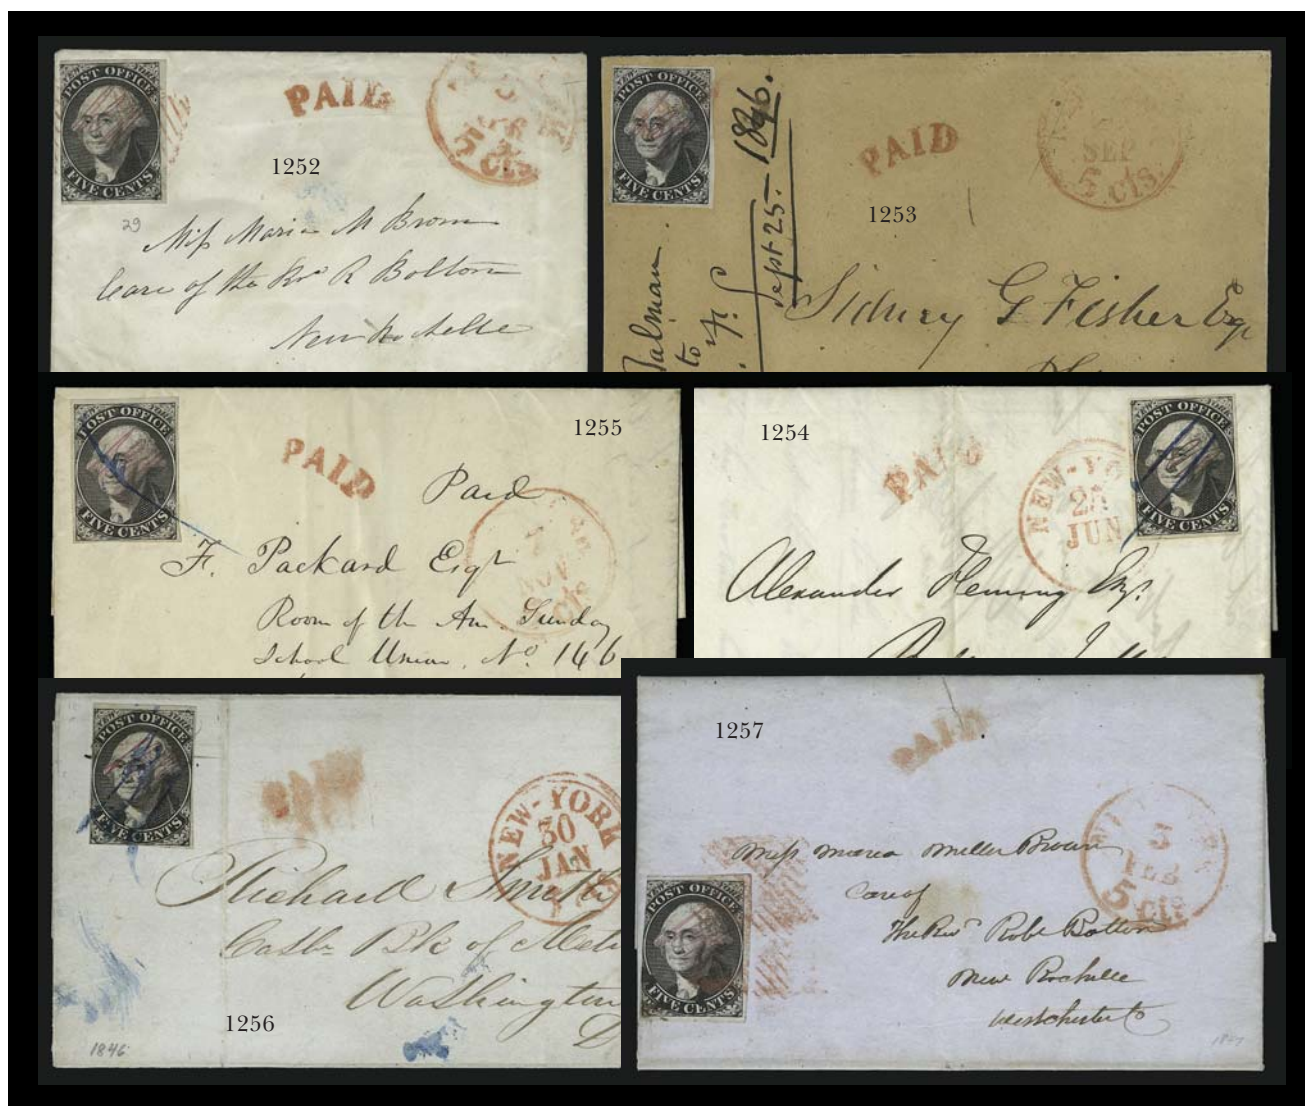 POST OFFICE
FIVE CENTS
PAID
5 cts.
1252
29
Miss Maria M Brown
Care of the Revd R Bolton
New Rochelle
POST OFFICE
FIVE CENTS
Talman
to
Sept 25. 1846.
PAID
SEP
5 cts.
1253
Sidney G Fisher Esq
POST OFFICE
FIVE CENTS
PAID
1255
Paid
NOV
cts
F. Packard Esqr
Room of the Am. Sunday
School Union, No. 146
1254
PAID
NEW-YO
25
JUN
POST OFFICE
FIVE CENTS
Alexander Fleming Esq.
POST OFFICE
FIVE CENTS
PAID
NEW-YORK
30
JAN
Richard Smith
Cashr Bk of Metr
Washington
1256
1846
1257
PAID
3
FEB
5 cts
POST OFFICE
FIVE CENTS
Miss Maria Miller Brown
Care of
The Revd Robt Bolton
New Rochelle
Westchester Co